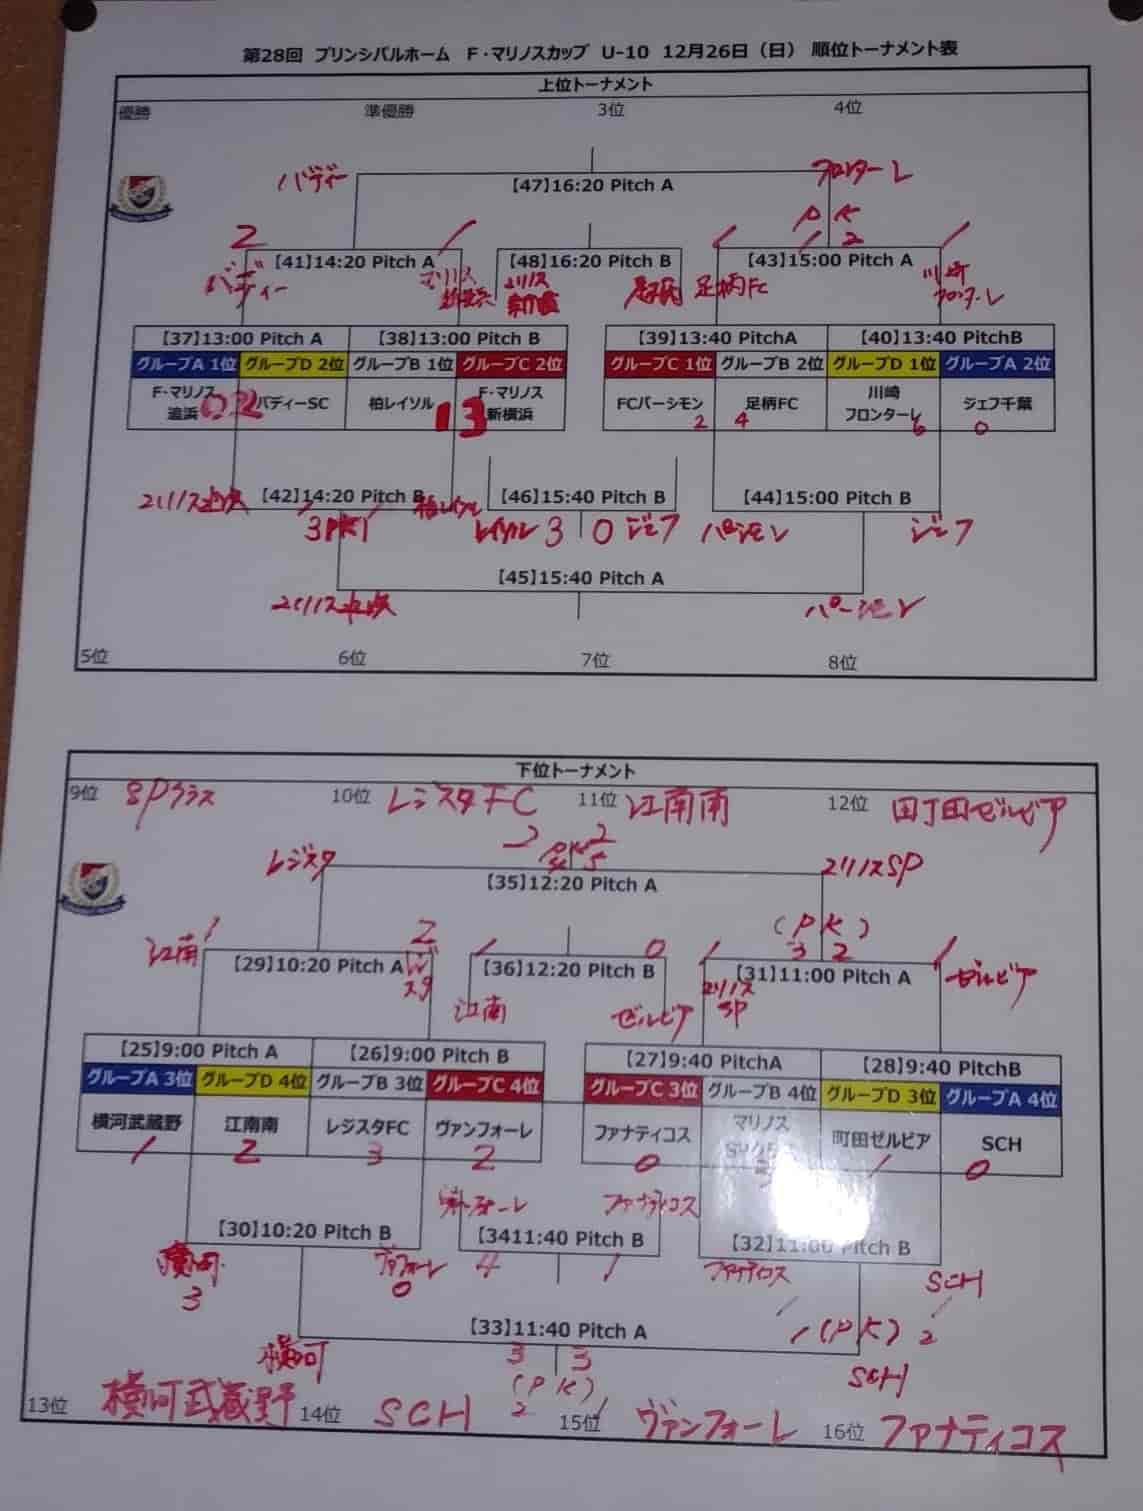 第28回 プリンシパルホーム F・マリノスカップ U-10 12月26日（日） 順位トーナメント表
上位トーナメント
優勝 準優勝 3位 4位
バディー フロンターレ
【47】16:20 Pitch A
PK
2 1 1 1 2 1
【41】14:20 Pitch A 【48】16:20 Pitch B 【43】15:00 Pitch A
バディー マリノス 新横浜 マリノス 足柄FC 川崎 フロンターレ
【37】13:00 Pitch A 【38】13:00 Pitch B 【39】13:40 PitchA 【40】13:40 PitchB
グループA 1位 グループD 2位 グループB 1位 グループC 2位 グループC 1位 グループB 2位 グループD 1位 グループA 2位
F・マリノス 追浜 バディーSC 柏レイソル F・マリノス 新横浜 FCパーシモン 足柄FC 川崎 フロンターレ ジェフ千葉
0 2 1 3 2 4 6 0
【42】14:20 Pitch B 【46】15:40 Pitch B 【44】15:00 Pitch B
マリノス追浜 3PK1 柏レイソル レイソル 3 0 ジェフ パーシモン ジェフ
【45】15:40 Pitch A
マリノス追浜 パーシモン
5位 6位 7位 8位
下位トーナメント
9位 SPクラス 10位 レジスタFC 11位 江南南 12位 町田ゼルビア
2 PK 2
4 5
レジスタ マリノスSP
【35】12:20 Pitch A
(PK)
3 2
江南 1 2 1 0 1 1 ゼルビア
【29】10:20 Pitch A 【36】12:20 Pitch B 【31】11:00 Pitch A
レジスタ 江南 ゼルビア マリノス SP
【25】9:00 Pitch A 【26】9:00 Pitch B 【27】9:40 PitchA 【28】9:40 PitchB
グループA 3位 グループD 4位 グループB 3位 グループC 4位 グループC 3位 グループB 4位 グループD 3位 グループA 4位
横河武蔵野 江南南 レジスタFC ヴァンフォーレ ファナティコス マリノス 町田ゼルビア SCH
1 2 3 2 0 1 0
ヴァンフォーレ ファナティコス
【30】10:20 Pitch B 【34】11:40 Pitch B 【32】11:00 Pitch B
横河 3 ヴァンフォーレ 0 4 1 ファナティコス SCH
1 1
1 (PK) 2
【33】11:40 Pitch A
横河 3 3 SCH
(PK)
2 1
13位 横河武蔵野 14位 SCH 15位 ヴァンフォーレ 16位 ファナティコス